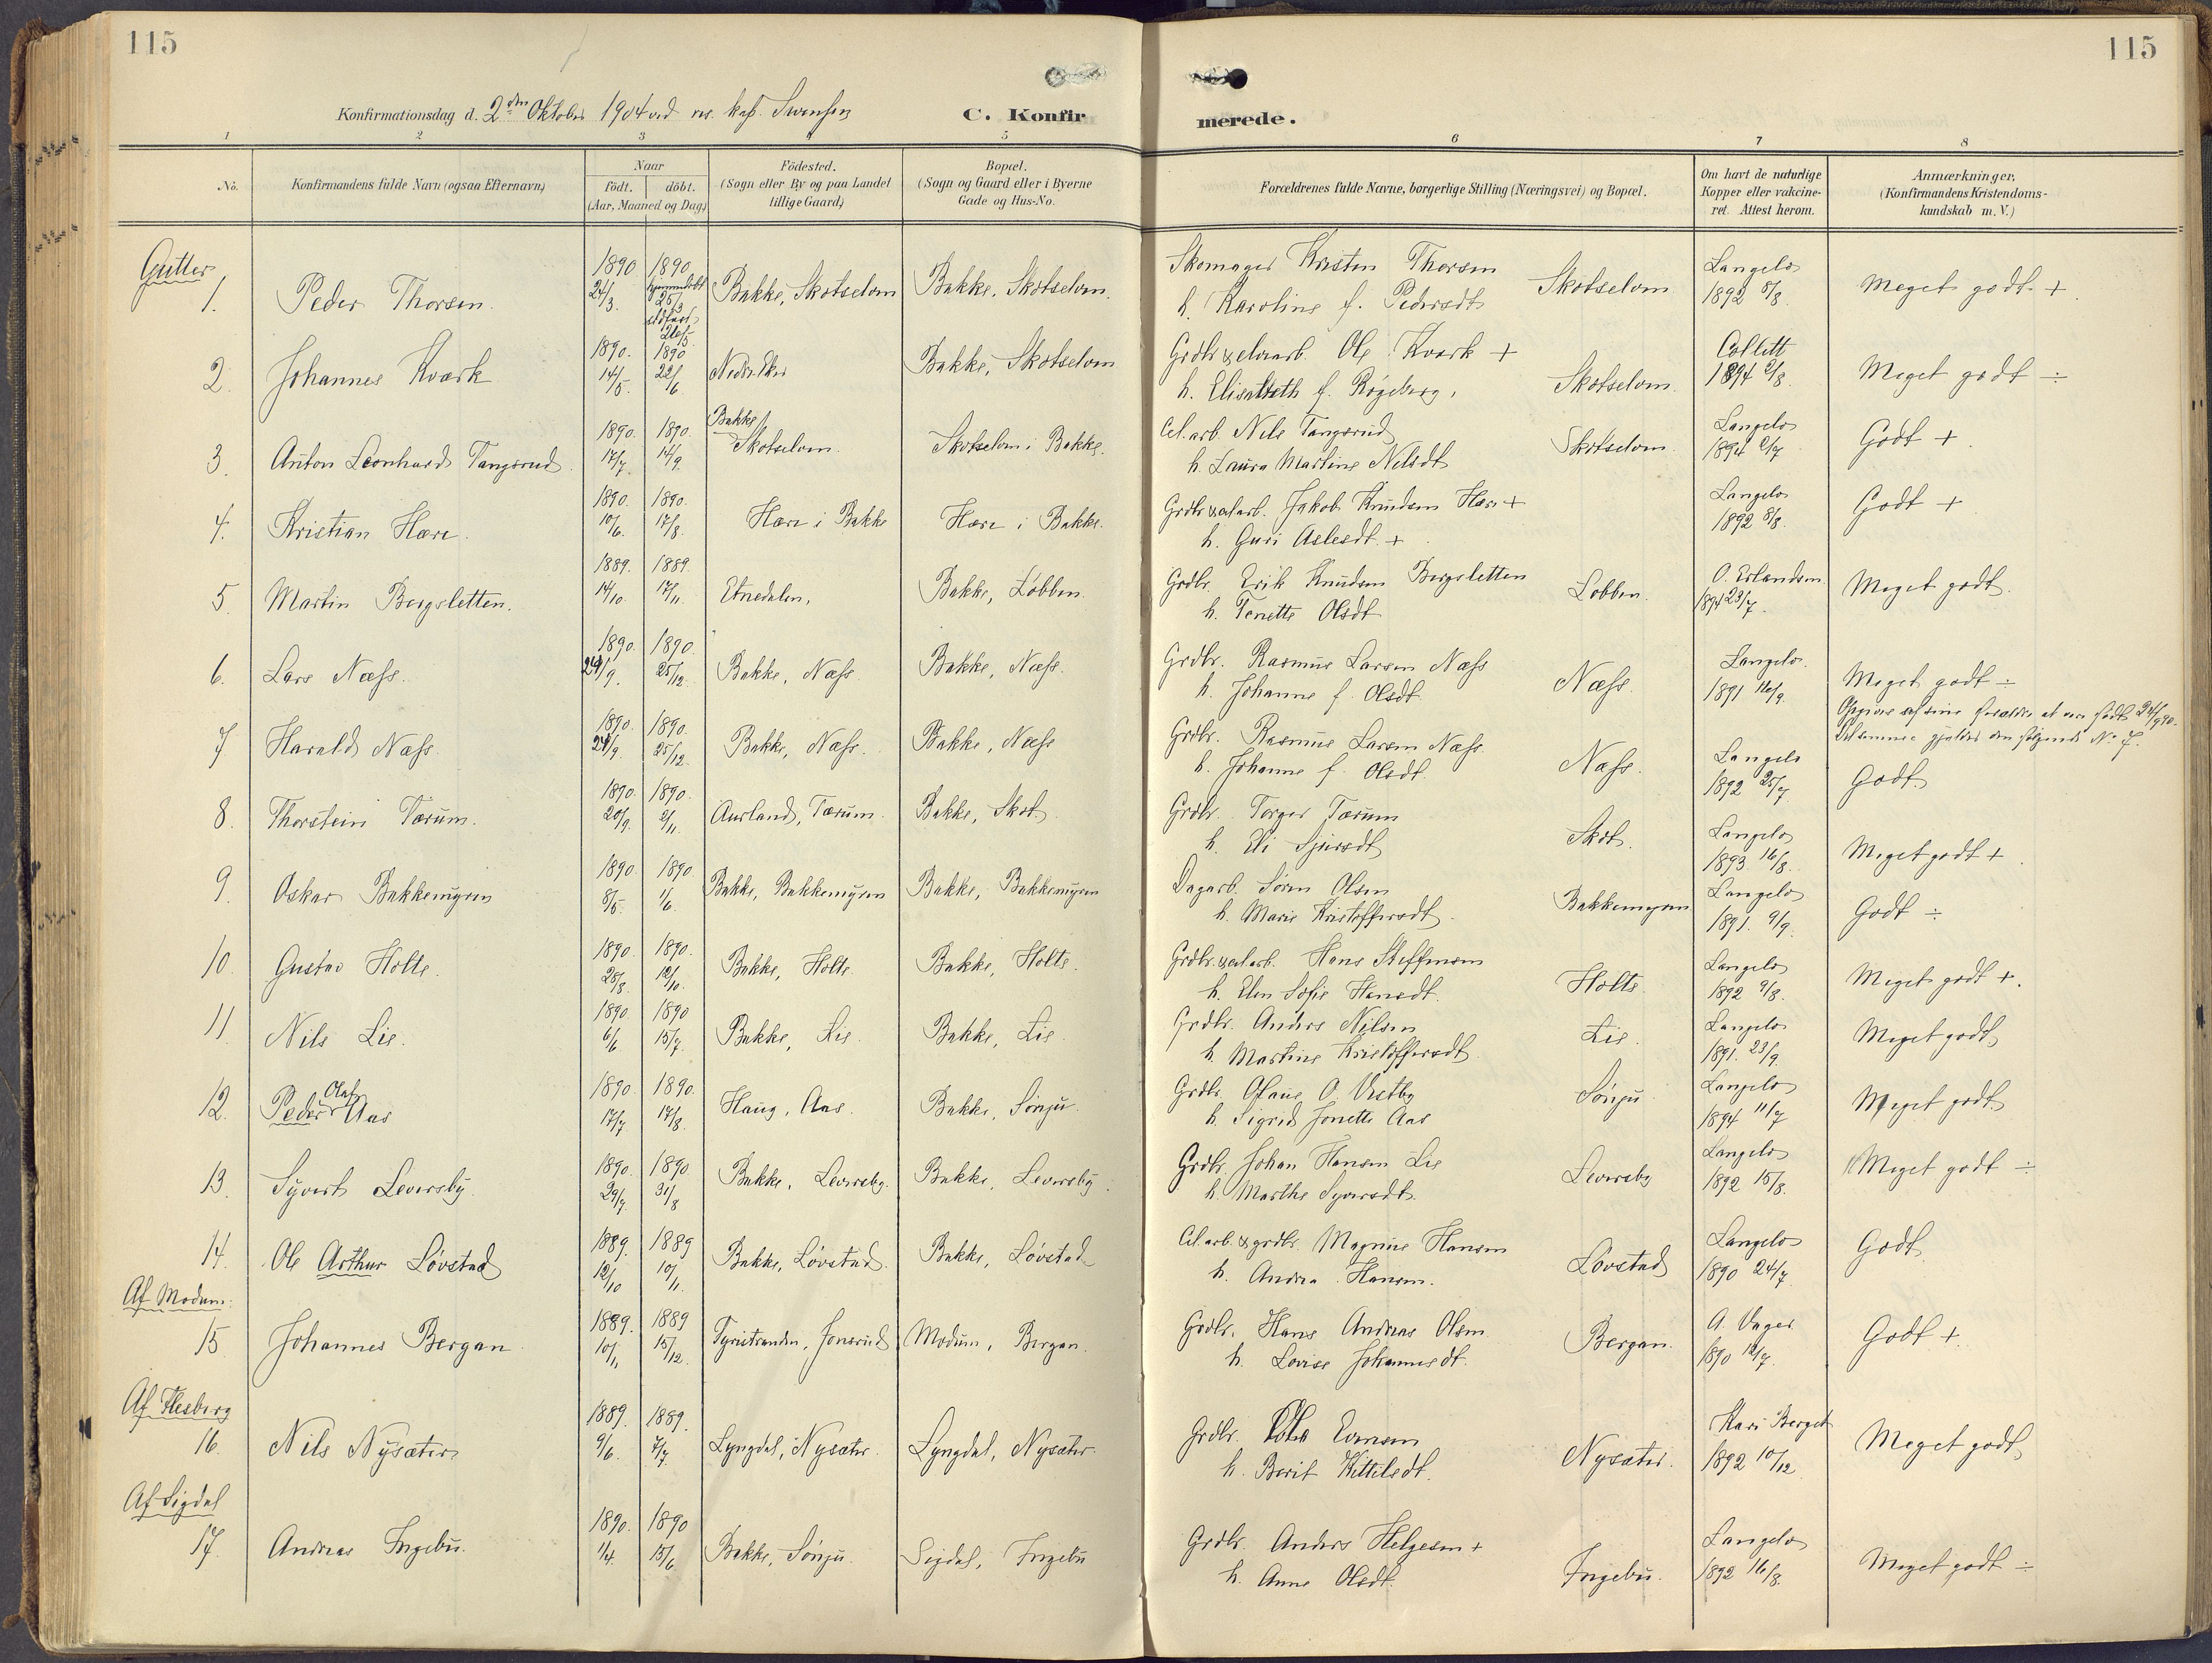 115
115
Konfirmationsdag d. 2den Oktober 1904 ved res. kap. Svensen
C. Konfir
merede.
1 2 3 4 5 6 7 8
No.
Konfirmandens fulde Navn (ogsaa Efternavn)
Naar
födt. döbt.
(Aar, Maaned og Dag)
Födested.
(Sogn eller By og paa Landet
tillige Gaard)
Bopæl.
(Sogn og Gaard eller i Byerne
Gade og Hus-No.
Forældrenes fulde Navne, borgerlige Stilling (Næringsvei) og Bopæl.
Om havt de naturlige
Kopper eller vakcine-
ret. Attest herom.
Anmærkninger,
(Konfirmandens Kristendoms-
kundskab m. V.)
Gutter
1. Peder Thorsen. 1890 24/3. 1890 hjemmedøbt 25/3 stadfæst 26/5 Bakke, Skotselven Bakke, Skotselven. Skomager Kristen Thorsen
h. Karoline f. Pedersdt Skotselven Langelo 1892 8/8. Meget godt +.
2. Johannes Kværk 1890. 14/5. 1890 22/6 Nedre Eker Bakke, Skotselven Grdbr & elvarb. Ole Kværk +
h. Elisabeth f. Røgeberg, Skotselven. Collett 1894 2/8. Meget godt ÷
3. Anton Leonhard Tangerud. 1890. 17/7. 1890. 14/9. Bakke, Skotselven. Skotselven i Bakke. Cel. arb. Nils Tangerud
h. Laura Martine Nilsdt Skotselven Langelo 1894 2/7 Godt +.
4. Kristian Hære. 1890. 10/6. 1890. 17/8. Hære i Bakke Hære i Bakke. Grdbr & cel.arb. Jakob Knudsen Hære +
h. Guri Aslesdt. + Langelo 1892 8/8. Godt +
5. Martin Bergsletten. 1889. 14/10. 1889. 17/11. Etnedalen, Bakke, Løbben. Grdbr. Erik Knudsen Bergsletten
h. Tenette Olsdt Løbben. O. Erlandsen 1894 23/7. Meget godt.
6. Lars Næss. 1890. 24/9. 1890. 25/12. Bakke, Næss. Bakke, Næss. Grdbr. Rasmus Larsen Næss
h. Johanne f. Olsdt. Næss. Langelo. 1891 16/9. Meget godt ÷
Opgives af sine forældre at være født 24/9 90.
Det samme gjælder den følgende No 7.
7 Harald Næss. 1890. 24/9. 1890. 25/12. Bakke, Næss. Bakke, Næss Grdbr. Rasmus Larsen Næss.
h. Johanne f. Olsdt. Næss. Langelo 1892 25/7 Godt.
8. Thorstein Tærum. 1890. 20/9. 1890. 2/11. Aurland, Tærum. Bakke, Skot. Grdbr. Torger Tærum
h. Eli Sjursdt Skot. Langelo 1893 16/8. Meget godt +.
9. Oskar Bakkemyren 1890 8/5. 1890 1/6. Bakke, Bakkemyren Bakke, Bakkemyren Dagarb. Søren Olsen
h. Marie Kristoffersdt. Bakkemyren Langelo 1891. 9/9. Godt ÷
10. Gustav Holte. 1890. 28/8. 1890. 12/10. Bakke, Holte. Bakke, Holte. Grdbr. & cel.arb. Hans Steffensen
h. Elen Sofie Hansdt. Holte. Langelo 1892 9/8. Meget godt +.
11 Nils Lie. 1890 6/6 1890 15/7. Bakke, Lie. Bakke, Lie. Grdbr. Anders Nilsen
h. Martine Kristoffersdt Lie. Langelo 1891. 23/9. Meget godt
12. Peder Olaf Aas 1890 17/7. 1890. 17/8. Haug, Aas. Bakke, Sønju. Grdbr. Olaus O. Vestby
h. Sigrid Jonette Aas Sønju Langelo 1894 11/7 Meget godt.
13. Syvert Leversby. 1890. 29/7. 1890 31/8 Bakke, Leversby. Bakke, Leversby. Grdbr. Johan Hansen Lie
h. Marthe Syversdt. Leversby Langelo 1892 15/8. Meget godt ÷
14. Ole Arthur Løvstad 1889. 12/10 1889 10/11. Bakke, Løvstad. Bakke, Løvstad Cel. arb. & grdbr. Magnus Hansen
h. Andrea Hansen. Løvstad Langelo 1890 24/7. Godt
Af Modum:
15 Johannes Bergan 1889. 10/11 1889 15/12. Tyristranden, Jonsrud Modum, Bergan. Grdbr. Hans Andreas Olsen
h. Lovise Johannesdt. Bergan. A. Vager 1890 12/7. Godt +
Af Flesberg
16. Nils Nysæter 1889. 9/6. 1889. 7/7. Lyngdal, Nysæter. Lyngdal, Nysæter. Grdbr. Evensen
h. Berit Kittilsdt. Nysæter. Kari Berget 1892 10/12. Meget godt
Af Sigdal
17. Andreas Ingebu. 1890. 1/4. 1890 15/6 Bakke, Sønju. Sigdal, Ingebu Grdbr. Anders Helgesen +
h. Anne Olsdt. Ingebu. Langelo 1892 16/8. Meget godt ÷